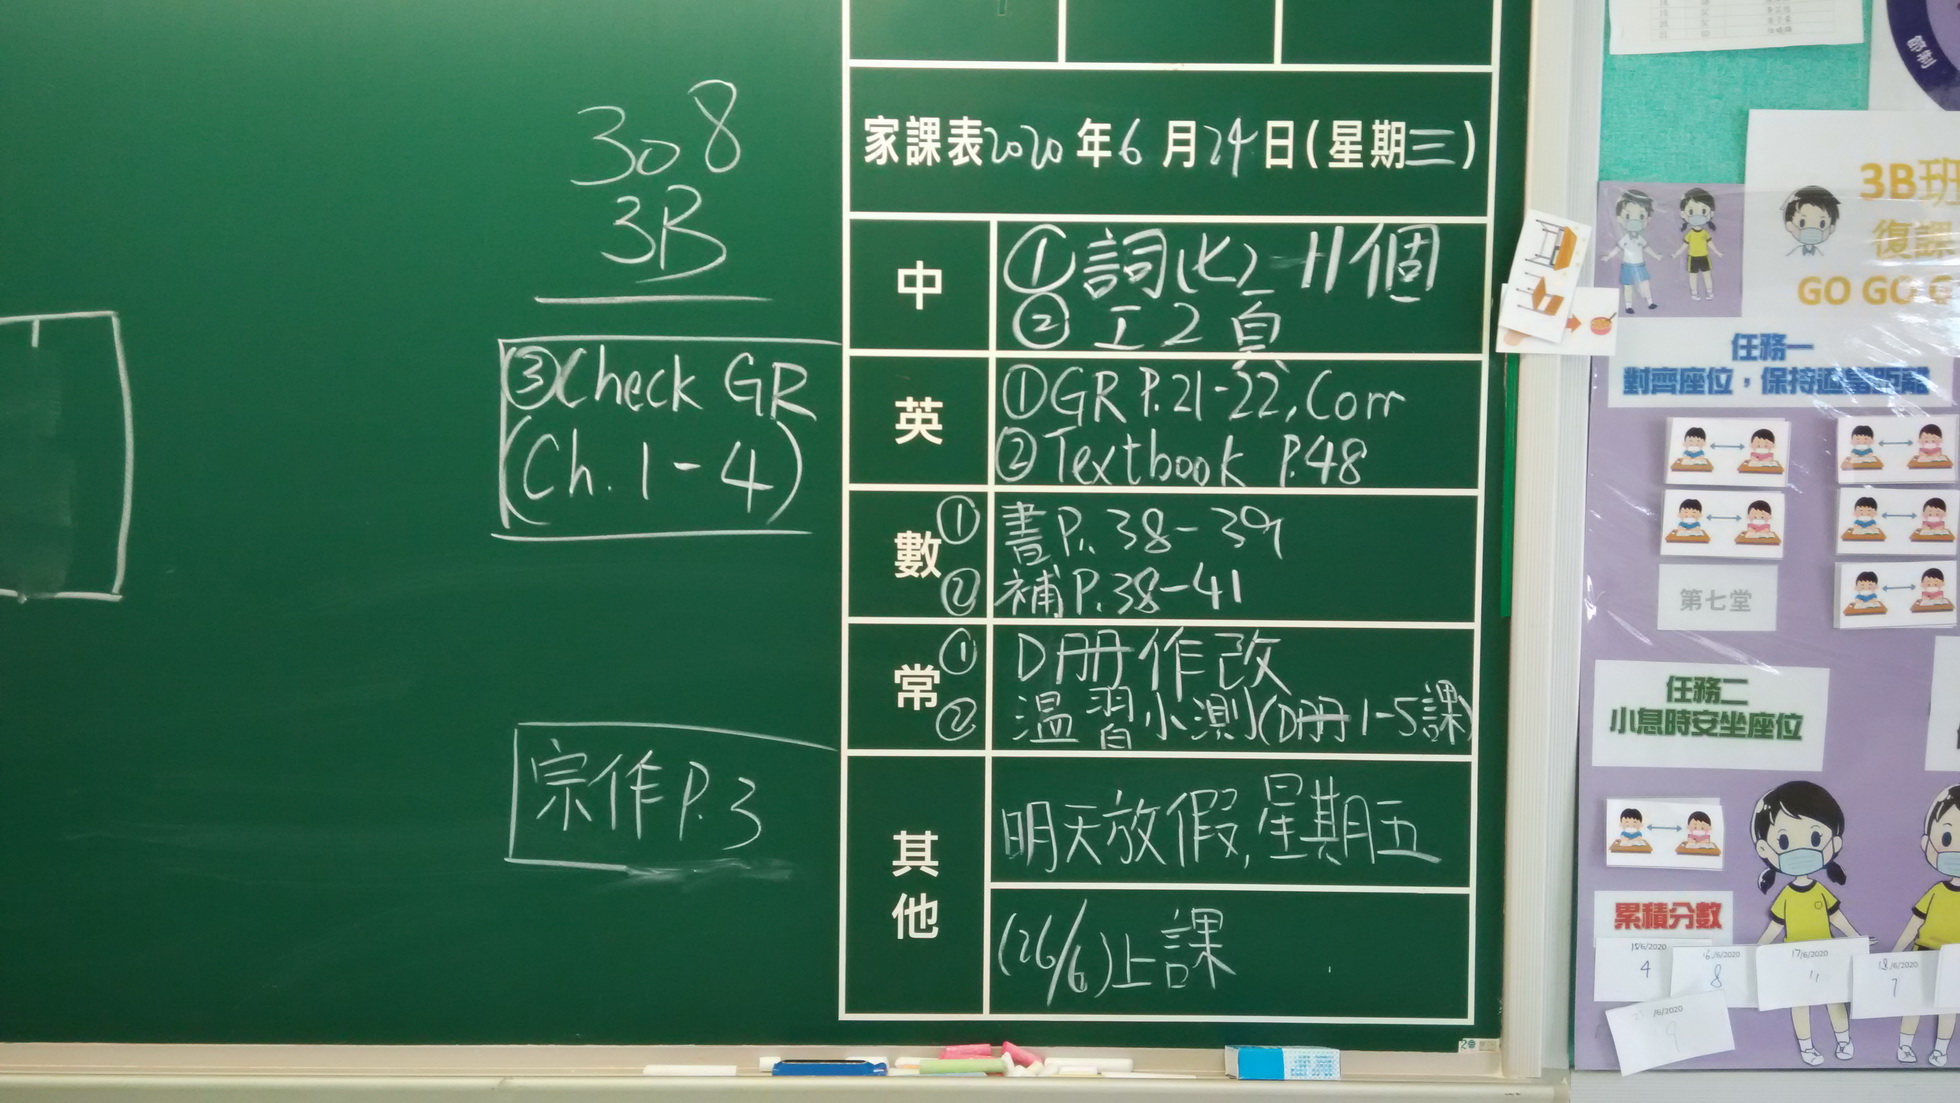 308
3B
③Check GR
(Ch. 1-4)
宗作P.3
家課表2020年6月24日(星期三)
中
①詞(七)-11個
②工2頁
英
①GR P.21-22, Corr
②Textbook P.48
數
①書P. 38-39
②補P.38-41
常
①D冊作改
②温習小測(D冊1-5課)
其他
明天放假,星期五
(26/6)上課
部制
3B班
復課
GO GO
任務一
對齊座位,保持適當距離
第七堂
任務二
小息時安坐座位
累積分數
15/6/2020
4
16/6/2020
8
17/6/2020
18/6/2020
7
/6/2020
9